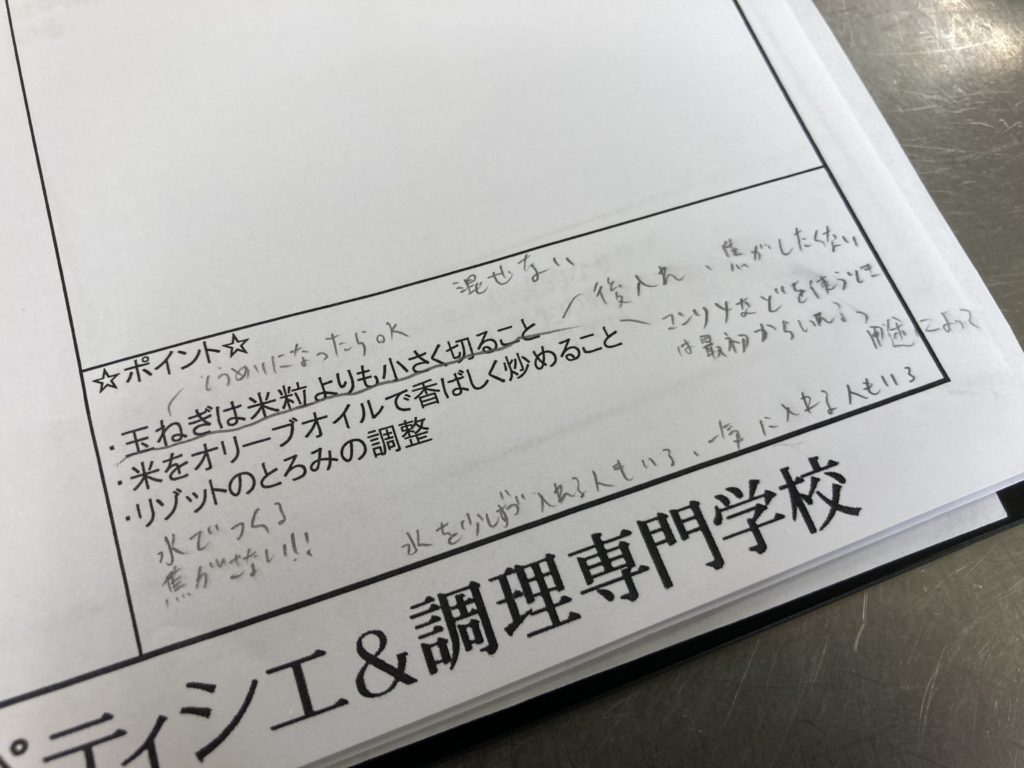 混ぜない
後入れ、焦がしたくない
☆ポイント☆
とうめいになったらOK
コンソメなどを使うとき
は最初からいれる
用途によって
・玉ねぎは米粒よりも小さく切ること
・米をオリーブオイルで香ばしく炒めること
・リゾットのとろみの調整
水でつくる
焦がさない!!!
水を少しずつ入れる人もいる、一気に入れる人もいる
パティシエ&調理専門学校